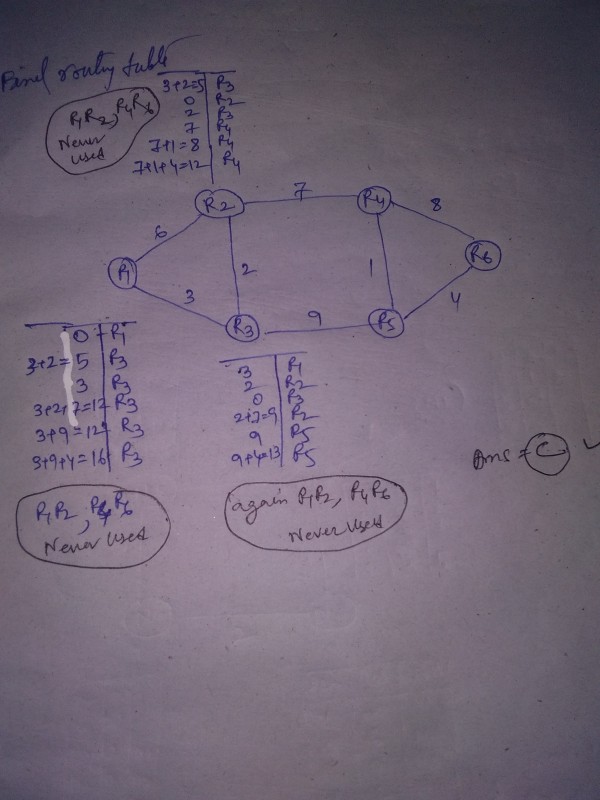 Final routing table
3+2=5 R3
0 R2
2 R3
7 R4
7+1=8 R4
7+1+4=12 R4
R1R2, R4R6
Never
used
R2 7 R4
6 8
R1 2 1 R6
3 4
R3 9 R5
0 R1
3+2=5 R3
3 R3
3+2+7=12 R3
3+9=12 R3
3+9+4=16 R3
3 R1
2 R2
0 R3
2+7=9 R2
9 R5
9+4=13 R5
Ans = C
R1R2, R4R6
Never Used
again R1R2, R4R6
Never Used